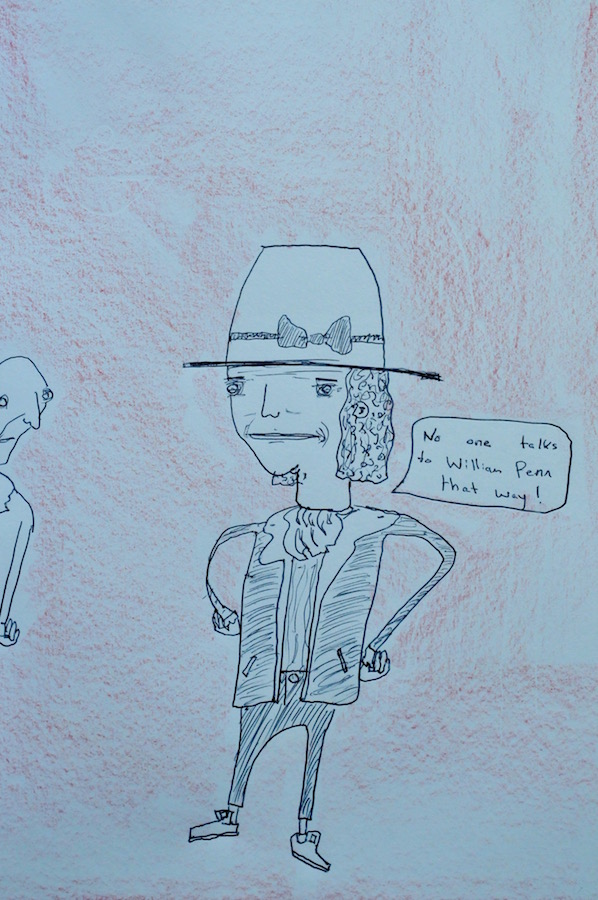 No one talks
to William Penn
that way!